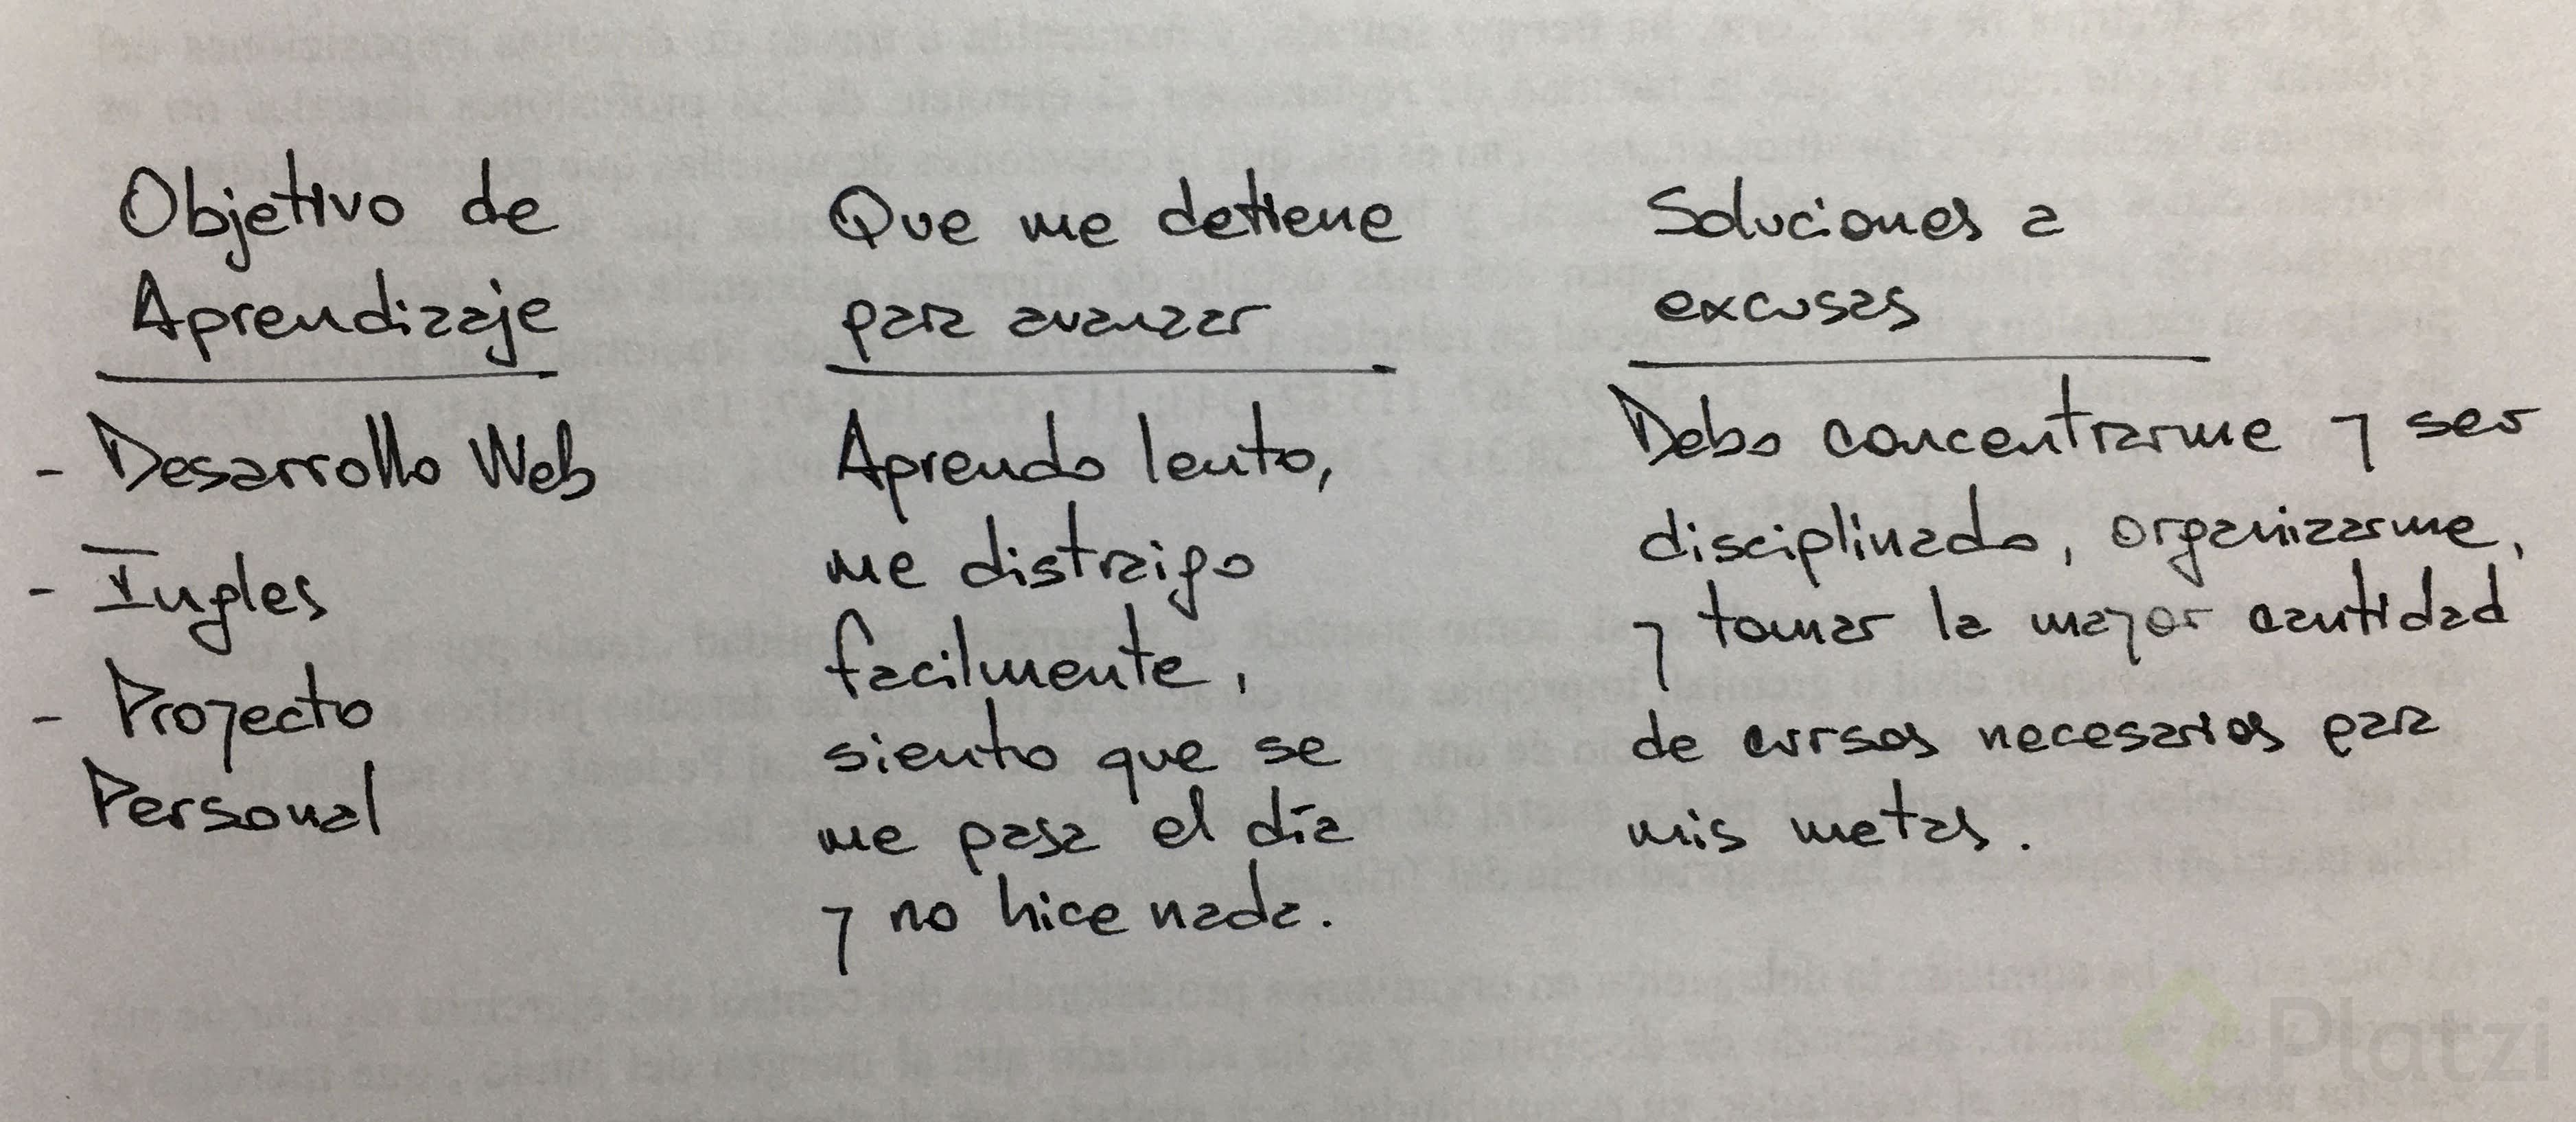 Objetivo de
Aprendizaje
- Desarrollo Web
- Ingles
- Proyecto
Personal
Que me detiene
para avanzar
Aprendo lento,
me distraigo
facilmente,
siento que se
me pasa el día
y no hice nada.
Soluciones a
excusas
Debo concentrarme y ser
disciplinado, organizarme,
y tomar la mayor cantidad
de cursos necesarios para
mis metas.
Platzi